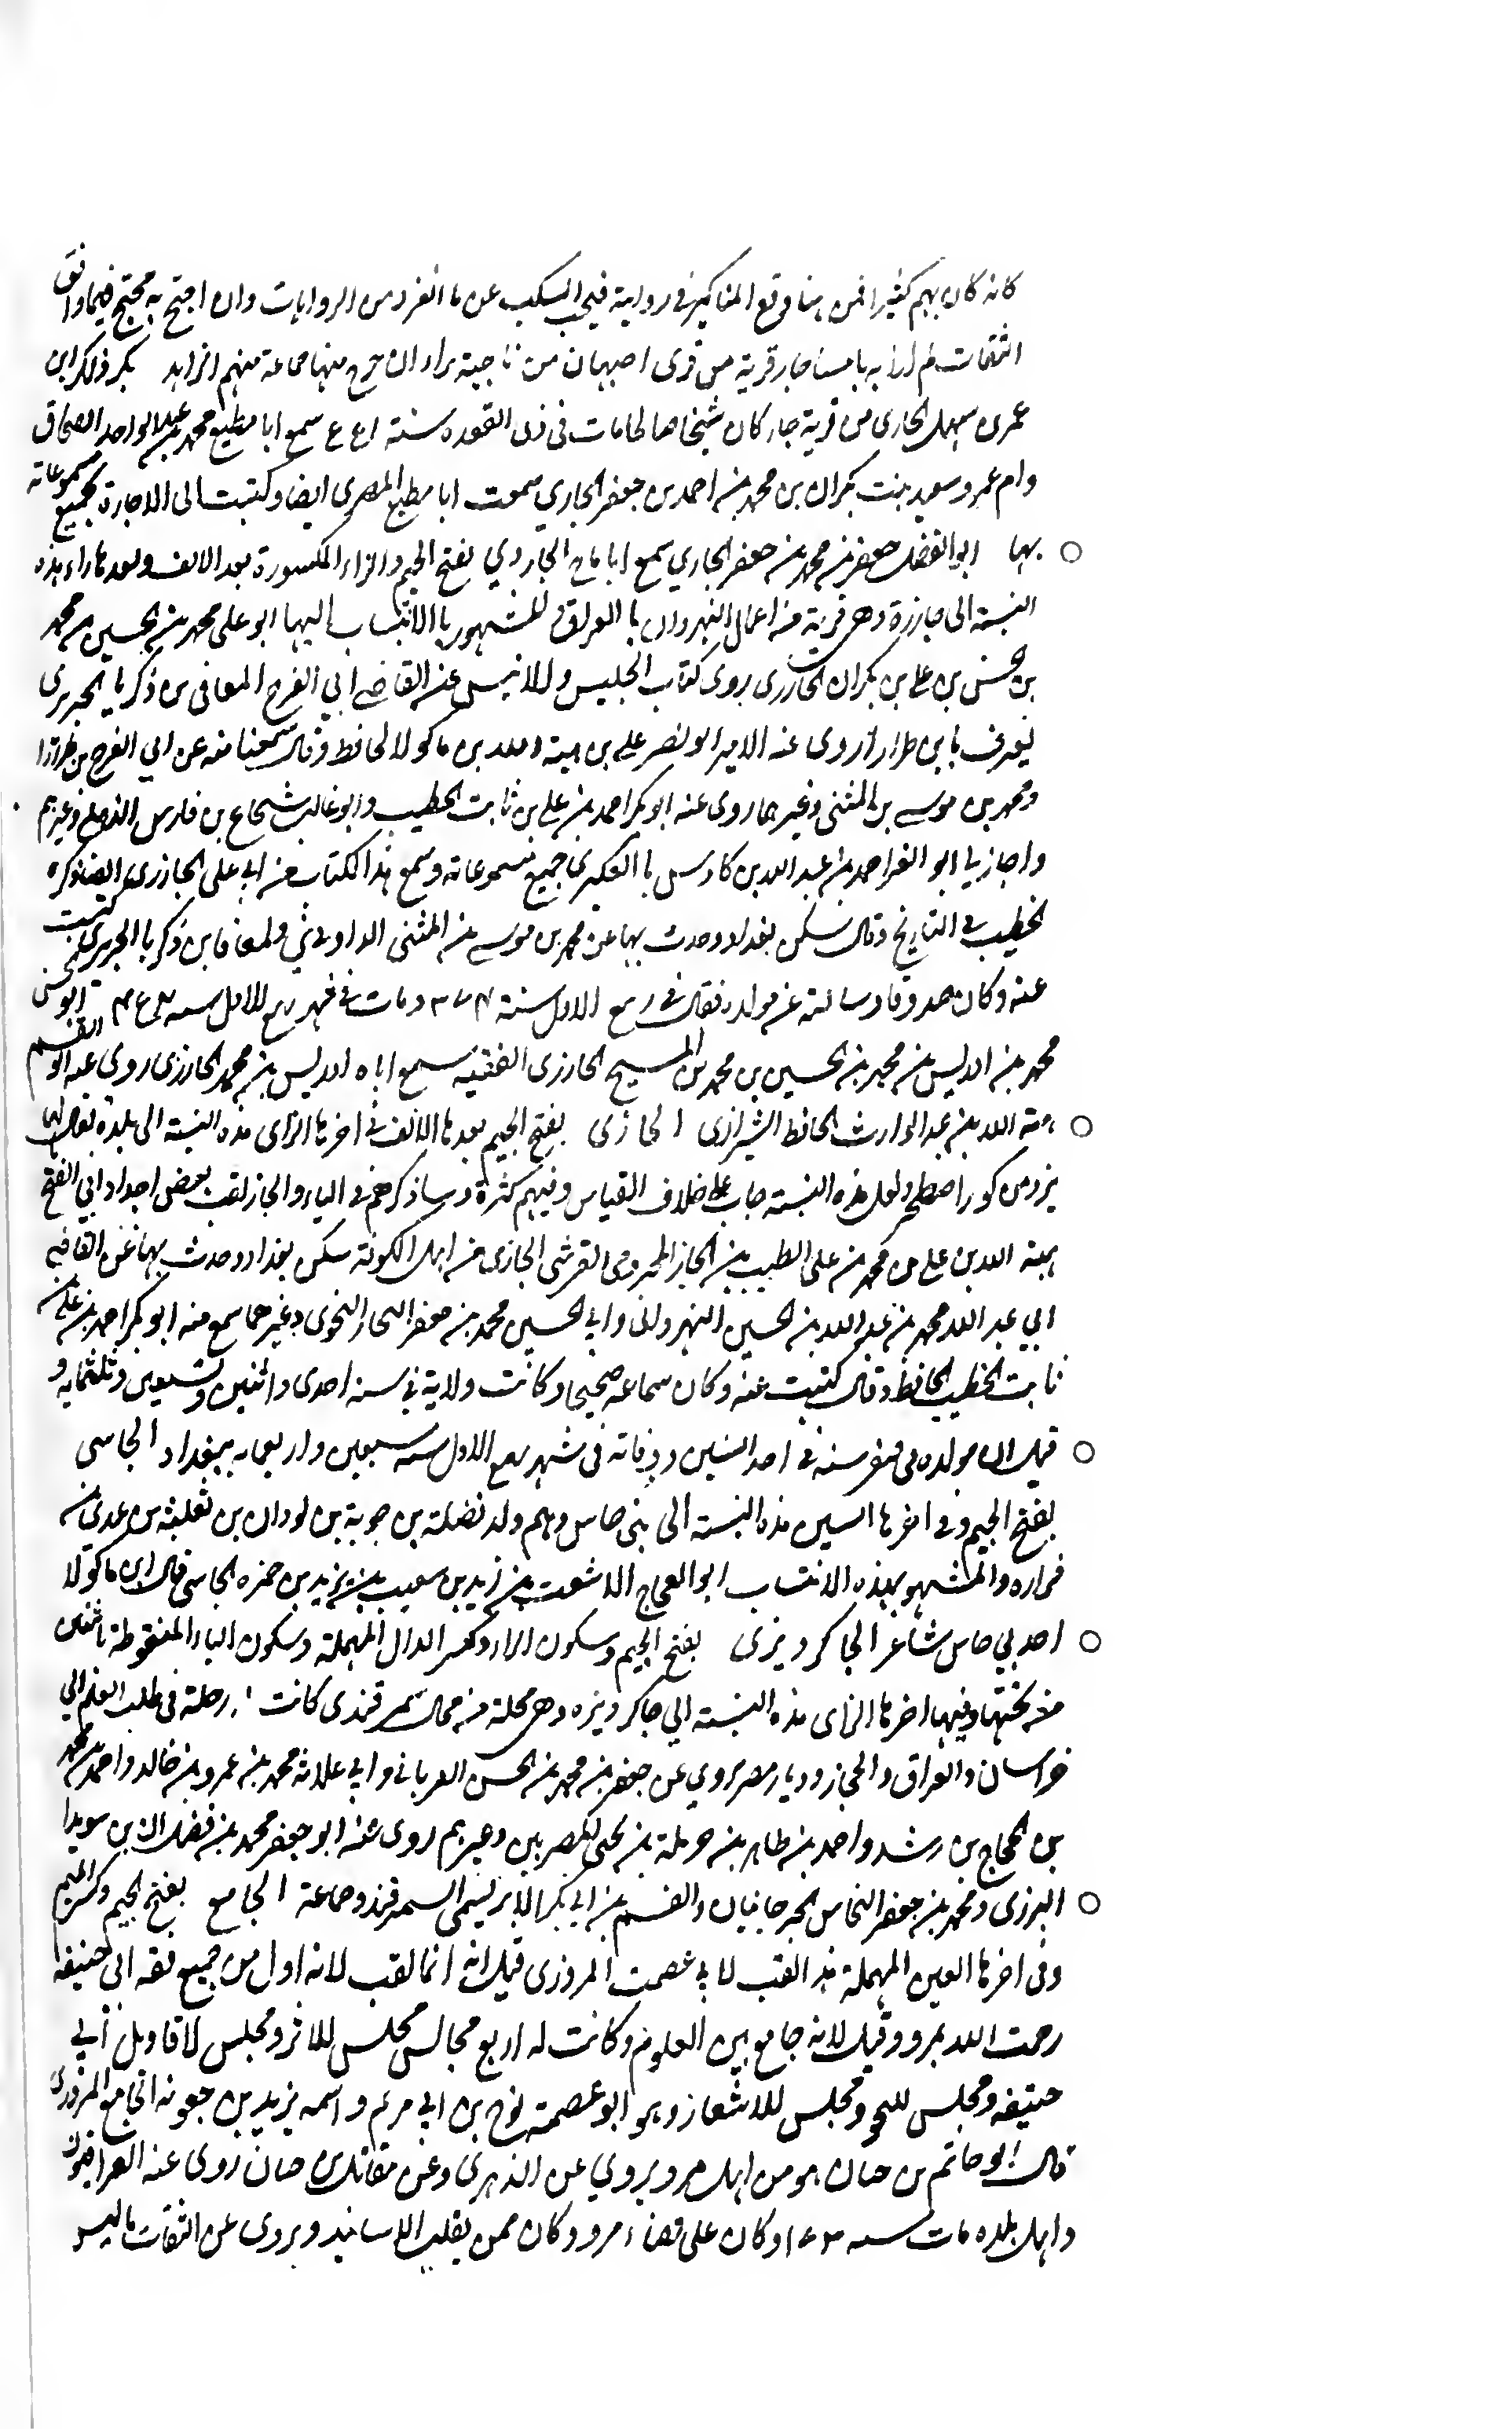 كانه كان يهم كثيرا فمن هنا وقع المناكير في روايته فيجب التنكب عن ما انفرد من الروايات وان احتج به محتج فيما وافق
الثقات لم ار به باسا جار قرية من قرى اصبهان من ناحية براان خرج منها جماعة منهم الزاهد بكر ذاكر ابن
عمر بن سهل الجاري من قرية جار كان شيخا صالحا مات في ذي القعده سنه سمع ابا مطيع محمد بن عبد الواحد الصحاف
وام عمرو سعيد بنت بكران بن محمد بن احمد بن جعفر الجاري سمعت ابا مطيع المصري ايضا وكتبت الى الاجازة بجميع مسموعاته
بها ابو الفضل جعفر بن محمد بن جعفر الجاري سمع ابا الجازري بفتح الجيم والزاء المكسورة بعد الالف وبعدها راء هذه
النسبة الى جازرة وهي قرية من اعمال النهروان بالعراق والمشهور بالانتساب اليها ابو علي محمد بن الحسين بن محمد
بن الحسن بن علي بن بكران الجازري يروى كتاب الجليس والانيس عن القاضي ابي الفرج المعافى بن زكريا الجريري
يعرف بابن طرارا روى عنه الامير ابو نصر علي بن هبة الله بن ماكولا الحافظ وقال سمعنا منه عن ابي الفرج بن طرارا
ومحمد بن موسى بن المثنى وغيرهما روى عنه ابو بكر احمد بن علي بن ثابت الخطيب وابو غالب شجاع بن فارس الذهلي وغيرهم
واجاز لي ابو العز احمد بن عبيد الله بن كادش العكبري جميع مسموعاته وسمع هذا الكتاب من ابي علي الجازري ايضا ذكره
الخطيب في التاريخ وقال سكن بغداد وحدث بها عن محمد بن موسى بن المثنى الداودي والمعافا بن زكريا الجريري كتبت
عنه وكان صدوقا وسالته عن مولده فقال في ربيع الاول سنة ٣٧٤ ومات في شهر ربيع الاول سنه ابو الحسن
محمد بن ادريس بن محمد بن الحسين بن محمد بن المسيح الجازري الفقيه سمع اباه ادريس بن محمد الجازري روى عنه ابو القسم
هبة الله بن عبد الوارث الحافظ الشيرازي الجازي بفتح الجيم بعدها الالف في اخرها الزاى هذه النسبة الى بلدة يقال لها
يزد من كور اصطخر ولعل هذه النسبة جاب على خلاف القياس وفيهم كثرة وساذكرهم في الياء والجاز لقب بعض اجداد ابي الفتح
هبة الله بن علي بن محمد بن علي الطيب بن الجاز المخزومي القرشي الجازي من اهل الكوفة سكن بغداد وحدث بها عن القاضي
ابي عبد الله محمد بن عبد الله بن الحسين النهرواني وابي الحسين محمد بن جعفر النجار النحوي وغيرهما سمع منه ابو بكر احمد بن علي بن
ثابت الخطيب الحافظ وقال كتبت عنه وكان سماعه صحيحا وكانت ولايته في سنه احدى واثنين وتسعين وثلثمايه و
قيل ان مولده في صفر سنه في احد السنين ووفاته في شهر ربيع الاول سنه سبعين واربعمايه ببغداد الجاسي
بفتح الجيم وفي اخرها السين هذه النسبة الى بني جاس وهم ولد نضلة بن جوية بن لوذان بن ثعلبة بن عدي بن
فزاره والمشهور بهذه الانتساب ابو العجاج الاشعث بن زيد بن سعيب بن يزيد بن ضمره الجاسي قال ابن ماكولا
احد بني جاس شاعر الجاكرديزى بفتح الجيم وسكون الراء وكسر الدال المهملة وسكون الياء المنقوطة باثنين
من تحتها وفيها اخرها الزاى هذه النسبة الى جاكرديزه وهي محلة من محال سمرقندي كانت رحلة في طلب العلم الى
خراسان والعراق والحجاز وديار مصر يروي عن جعفر بن محمد بن الحسن الفريابي وابي علاثه محمد بن عمرو بن خالد واحمد بن محمد
بن الحجاج بن رشد واحمد بن طاهر بن حرملة بن يحيى المصريين وغيرهم روى عنه ابو جعفر محمد بن فضلان بن سويدا
البرذي ومحمد بن جعفر النحاس الجرجانيان والقسم بن ابي بكر الابريسمي السمرقندي وجماعة الجامع بفتح الجيم وكسر الميم
وفي اخرها العين المهملة هذا لقب لابي عصمت المروزي قيل انه انما لقب لانه اول من جمع فقه ابي حنيفه
رحمت الله بمرو وقيل لانه جامع بين العلوم وكانت له اربع مجالس مجلس للاثر ومجلس لاقاويل ابي
حنيفه ومجلس للنحو ومجلس للاشعار وهو ابو عصمة نوح بن ابي مريم واسمه يزيد بن جعونه الجامع المروزي
قال ابو حاتم بن حبان هو من اهل مرو يروي عن الزهري وعن مقاتل بن حيان روى عنه العراقيون
واهل بلده مات سنه ١٧٣ وكان على قضاء مرو وكان ممن يقلب الاسانيد ويروى عن الثقات ما ليس